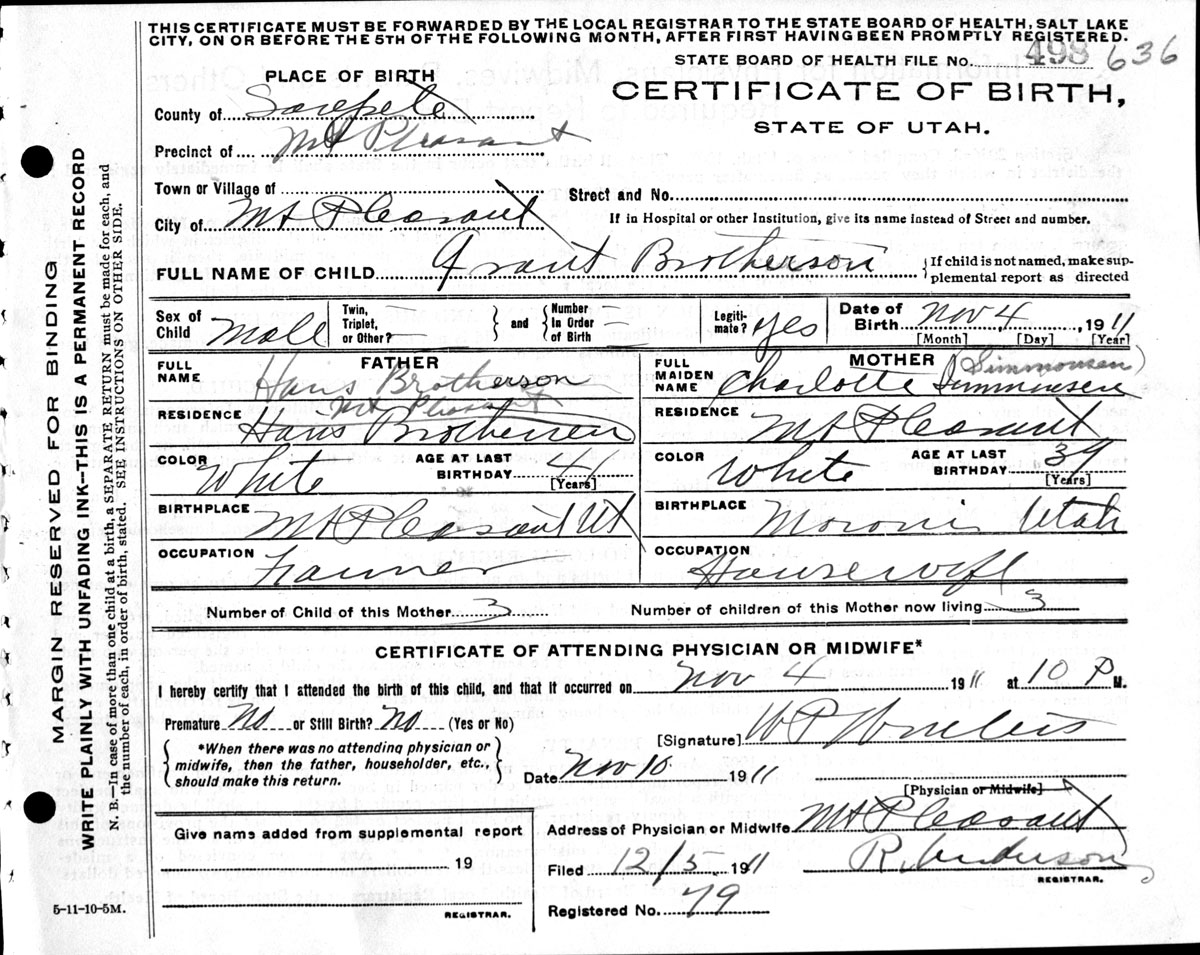 THIS CERTIFICATE MUST BE FORWARDED BY THE LOCAL REGISTRAR TO THE STATE BOARD OF HEALTH, SALT LAKE
CITY, ON OR BEFORE THE 5TH OF THE FOLLOWING MONTH, AFTER FIRST HAVING BEEN PROMPTLY REGISTERED.
STATE BOARD OF HEALTH FILE No. 498 636
PLACE OF BIRTH
CERTIFICATE OF BIRTH,
STATE OF UTAH.
County of Sanpete
Precinct of Mt Pleasant
Town or Village of
Street and No.
City of Mt Pleasant
If in Hospital or other Institution, give its name instead of Street and number.
FULL NAME OF CHILD Grant Brotherson
{If child is not named, make sup-
plemental report as directed
Sex of Child Male
Twin, Triplet, or Other? —
and
Number In Order of Birth —
Legiti-mate? Yes
Date of Birth Nov 4 1911
[Month] [Day] [Year]
FATHER
FULL NAME Hans Brotherson
MOTHER
FULL MAIDEN NAME Charlotte Simmonsen (Simmonsen)
Mt Pleasant
RESIDENCE Hans Brothersen
RESIDENCE Mt Pleasant
COLOR White
AGE AT LAST BIRTHDAY 41
[Years]
COLOR White
AGE AT LAST BIRTHDAY 39
[Years]
BIRTHPLACE Mt Pleasant Ut
BIRTHPLACE Moroni Utah
OCCUPATION Farmer
OCCUPATION Housewife
Number of Child of this Mother 3
Number of children of this Mother now living 3
CERTIFICATE OF ATTENDING PHYSICIAN OR MIDWIFE*
I hereby certify that I attended the birth of this child, and that it occurred on Nov 4 1911 at 10 P M.
Premature No or Still Birth? No (Yes or No)
*When there was no attending physician or
midwife, then the father, householder, etc.,
should make this return.
[Signature] W P
Date Nov 10 1911
[Physician or Midwife]
Address of Physician or Midwife Mt Pleasant
Give name added from supplemental report
19
REGISTRAR.
Filed 12/5 1911
R. Anderson
REGISTRAR.
Registered No. 79
5-11-10-5M.
MARGIN RESERVED FOR BINDING
WRITE PLAINLY WITH UNFADING INK—THIS IS A PERMANENT RECORD
N. B.—In case of more than one child at a birth, a SEPARATE RETURN must be made for each, and
the number of each, in order of birth, stated. SEE INSTRUCTIONS ON OTHER SIDE.